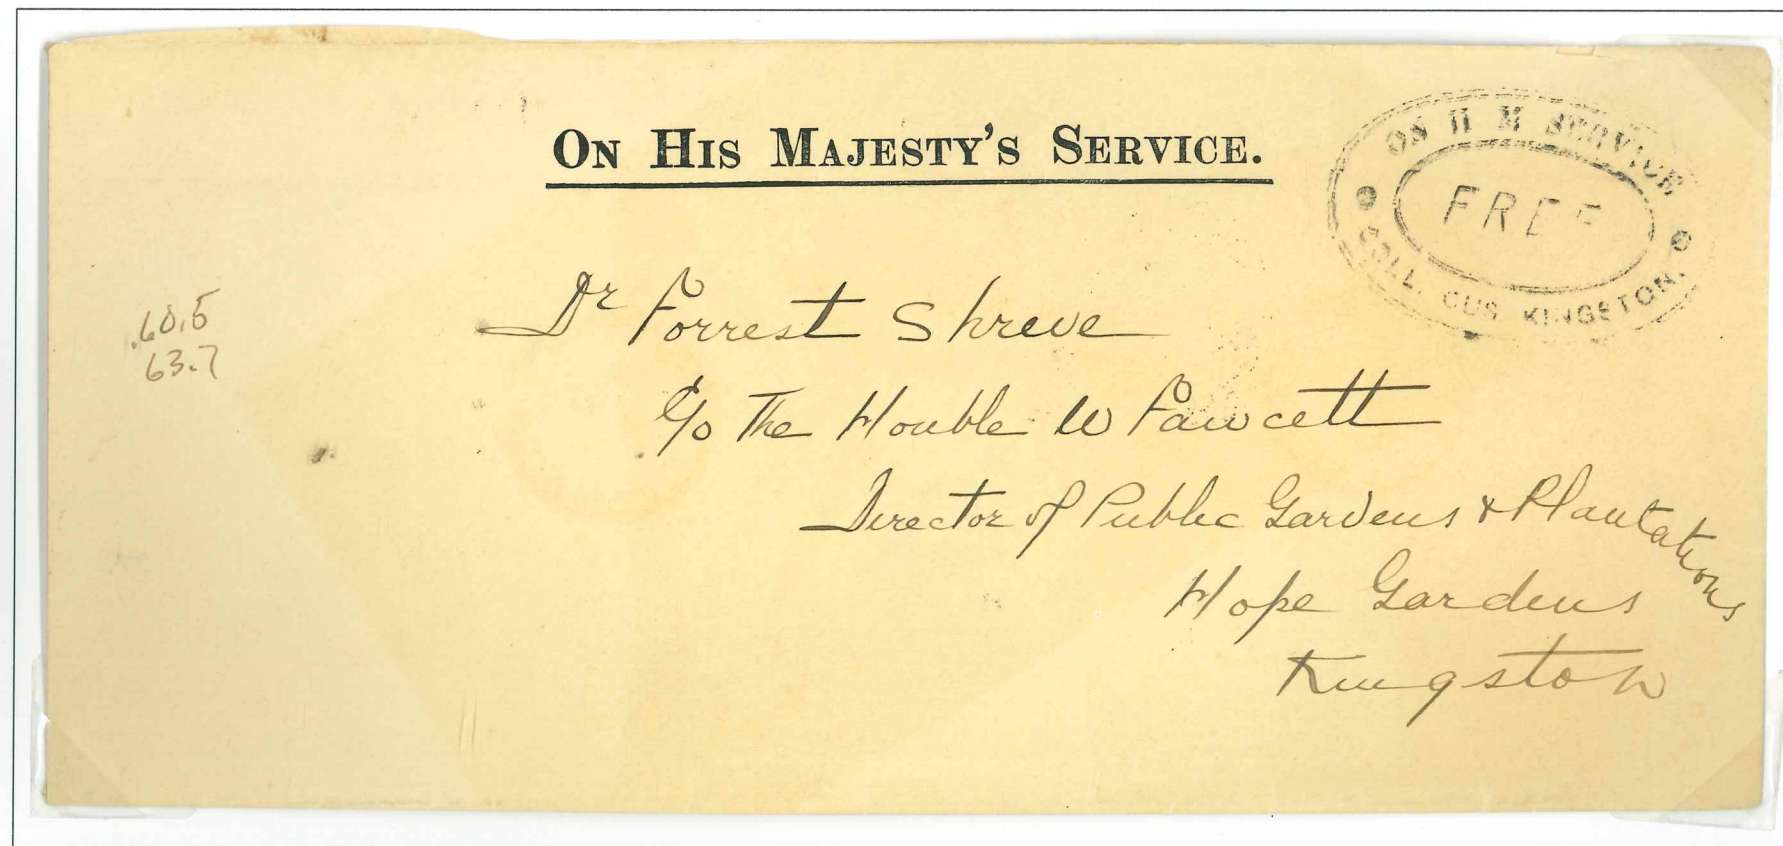 ON HIS MAJESTY'S SERVICE.
ON H M SERVICE
FREE
COLL. CUS. KINGSTON.
Dr Forrest Shreve
c/o The Honble W Fawcett
Director of Public Gardens & Plantations
Hope Gardens
Kingston
60.5
63.7